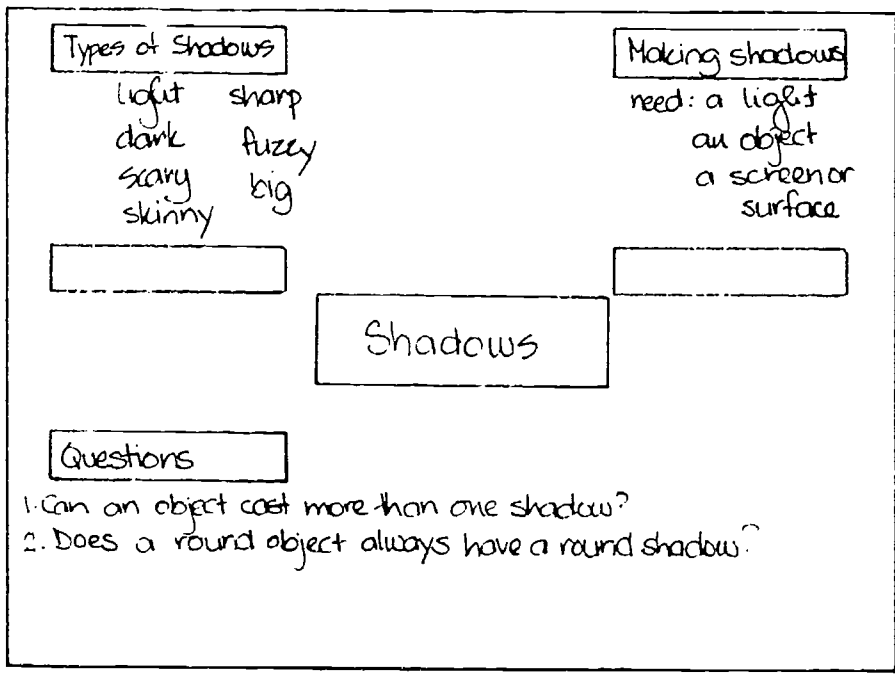 Types of Shadows
light sharp
dark fuzzy
scary big
skinny
Making shadows
need: a light
an object
a screen or
surface
Shadows
Questions
1. Can an object cast more than one shadow?
2. Does a round object always have a round shadow?